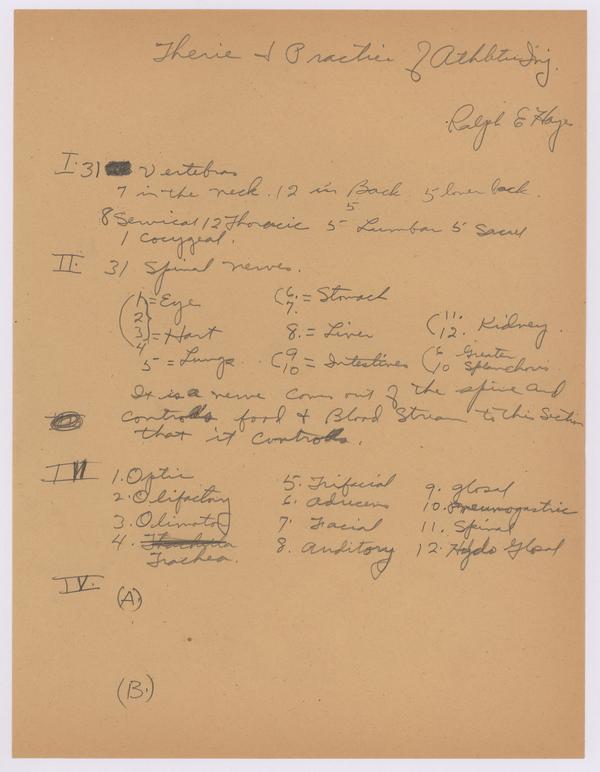 Therie & Practice of Athletic Inj.
Ralph E Hays
I. 31 Vertebras
7 in the neck. 12 in Back 5 lower back.
5
8 Servical 12 Thoracic 5 Lumbar 5 Sacrel
1 Cocygeal.
II. 31 Spinal nerves.
1 = Eye
2
3 = Hart
4
5 = Lungs
6. = Stomach
7.
8. = Liver
9 = Intestines
10
11. Kidney
12.
6 Greater
10 Splanchnis
It is a nerve comes out of the spine and
controlls food & Blood Stream to this section
that it controlls.
III 1. Optic
2. Olifactory
3. Olimotor
4. Trachea.
5. Trifacial
6. Aducens
7. Facial
8. Auditory
9. glosal
10. Pneumogastric
11. Spinal
12. Hydo Glosal
IV. (A)
(B.)